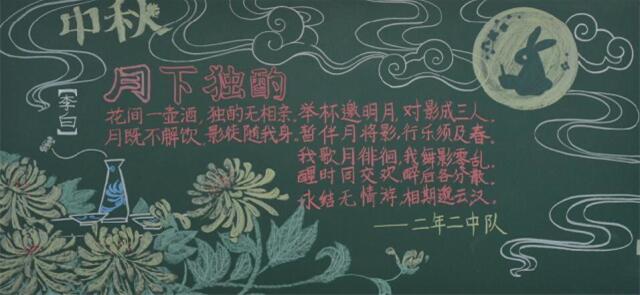 中秋
月下独酌
【李白】
花间一壶酒,独酌无相亲.举杯邀明月,对影成三人.
月既不解饮,影徒随我身.暂伴月将影,行乐须及春.
我歌月徘徊,我舞影零乱.
醒时同交欢,醉后各分散.
永结无情游,相期邈云汉.
——二年二中队